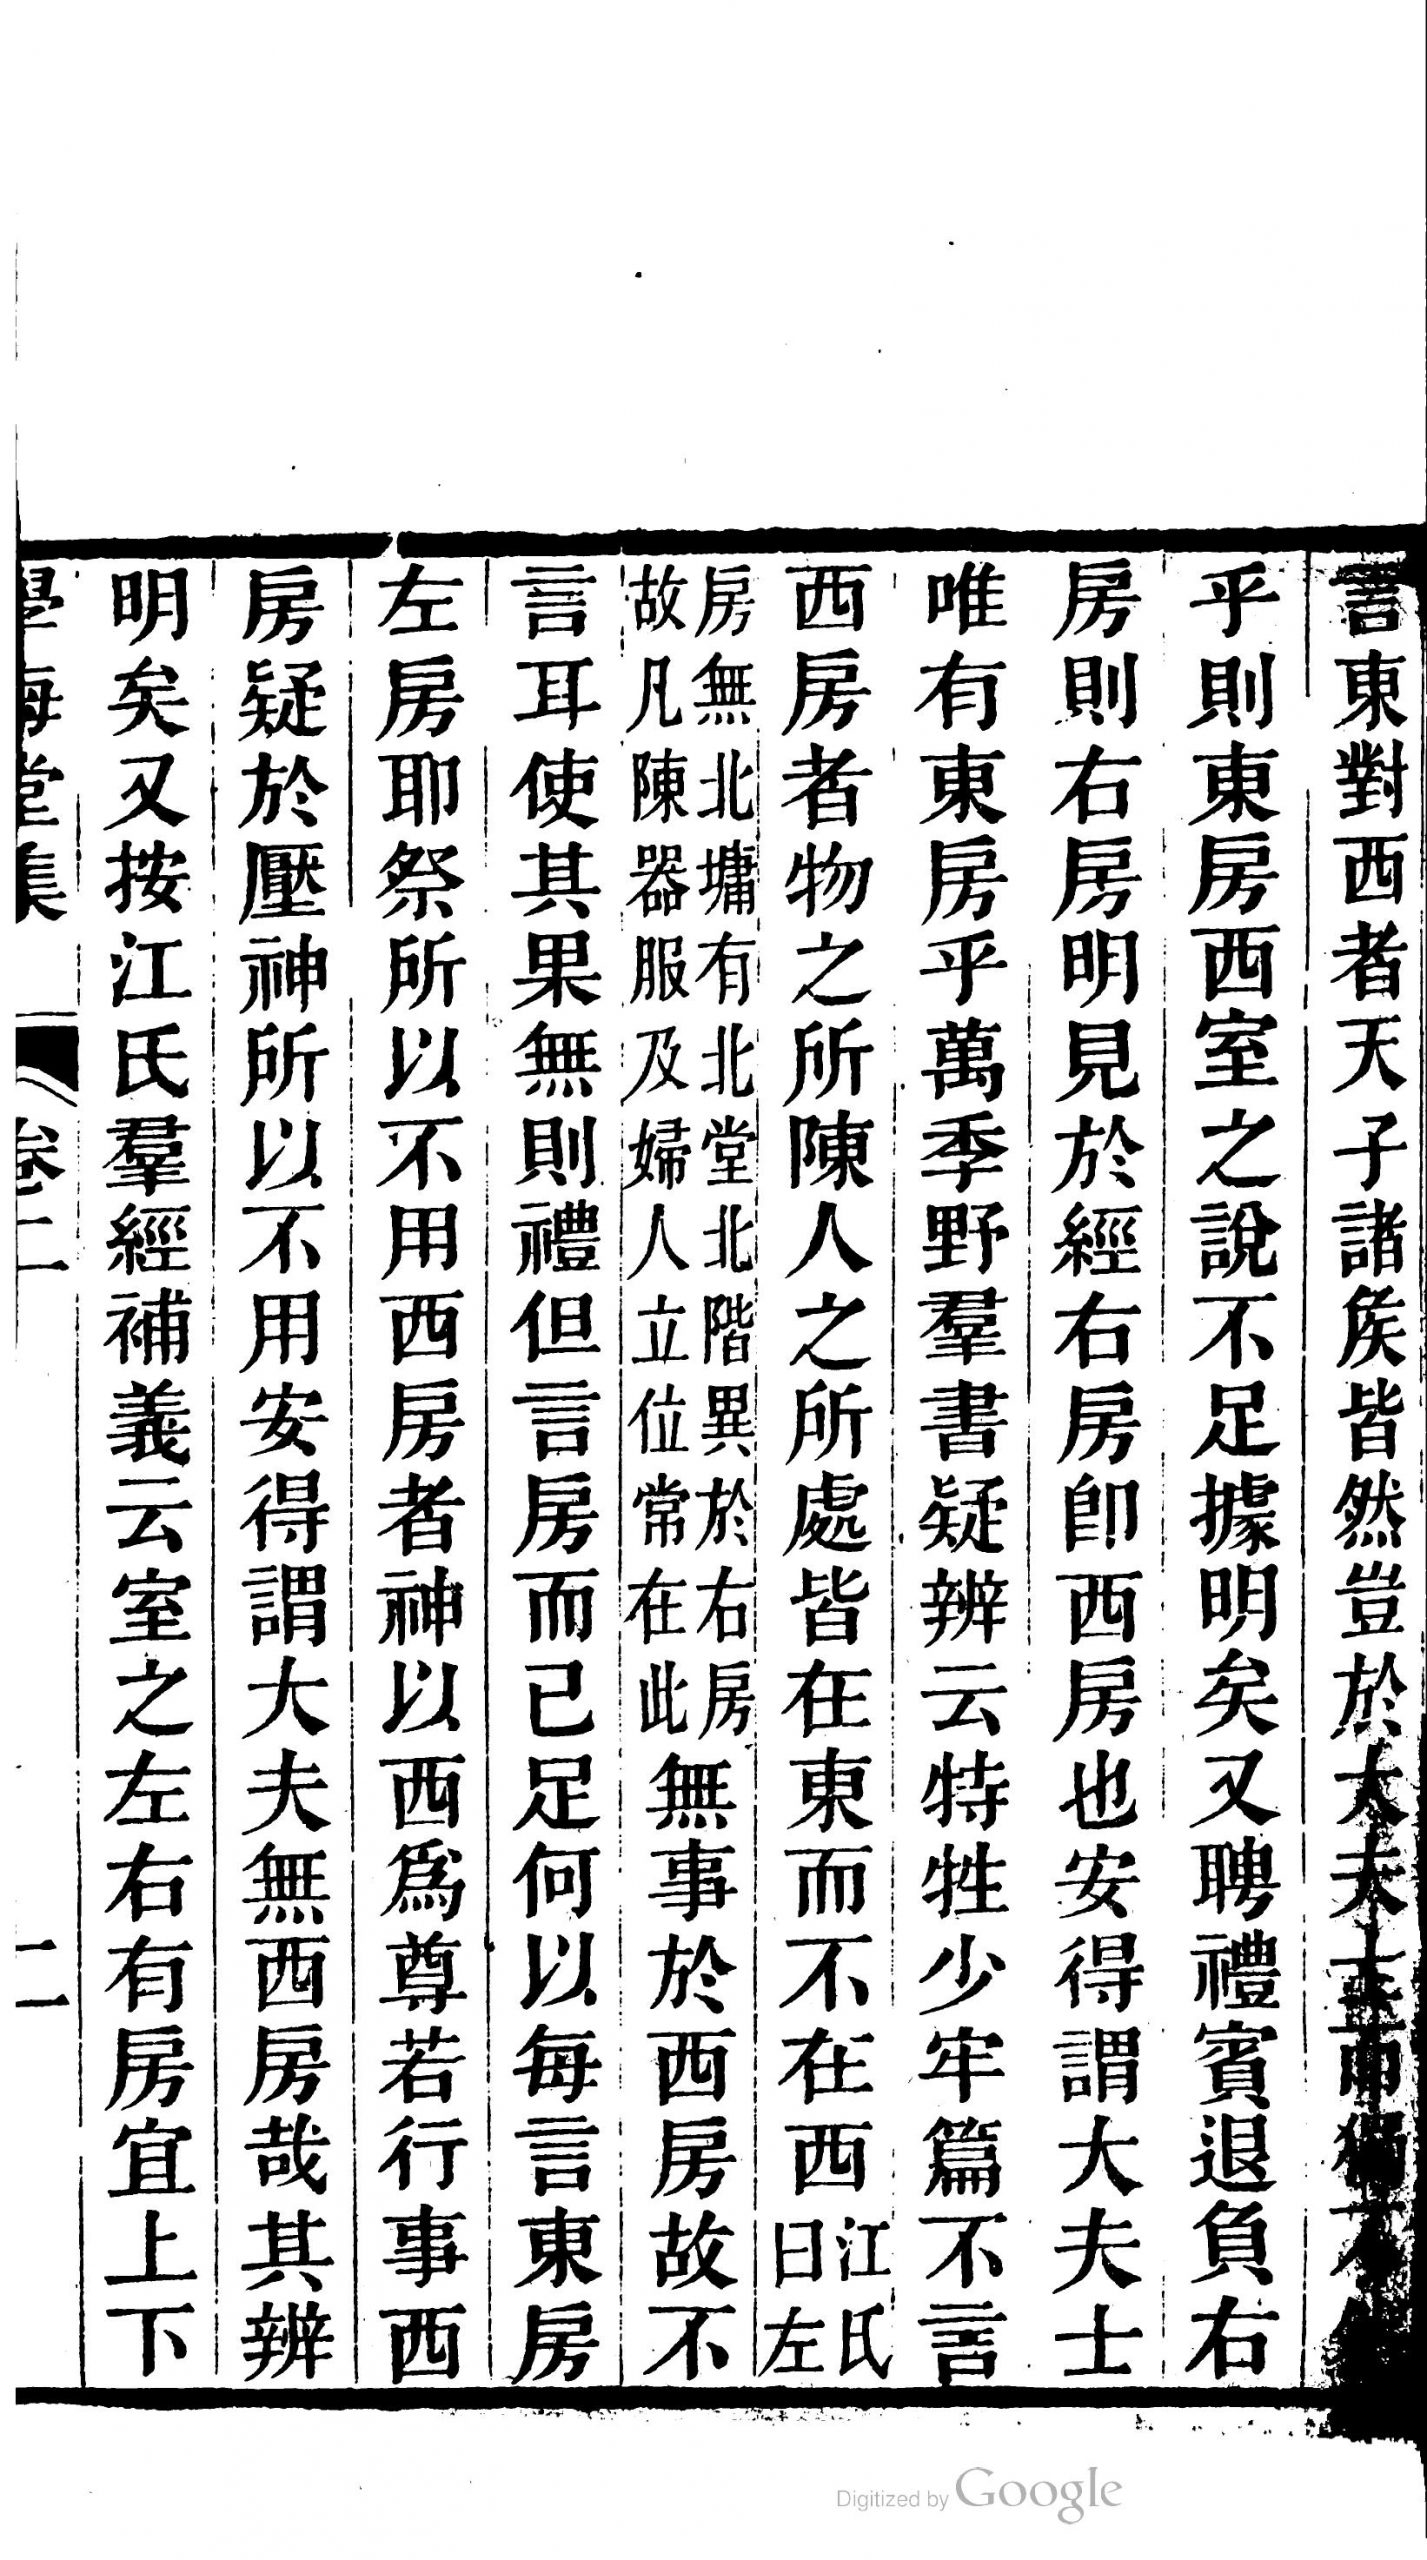 言東對西者天子諸矦皆然豈於大夫士而獨不
乎則東房西室之說不足據明矣又聘禮賓退負右
房則右房明見於經右房卽西房也安得謂大夫士
唯有東房乎萬季野羣書疑辨云特牲少牢篇不言
西房者物之所陳人之所處皆在東而不在西江氏曰左
房無北墉有北堂北階異於右房故凡陳器服及婦人立位常在此無事於西房故不
言耳使其果無則禮但言房而已足何以每言東房
左房耶祭所以不用西房者神以西爲尊若行事西
房疑於壓神所以不用安得謂大夫無西房哉其辨
明矣又按江氏羣經補義云室之左右有房宜上下
學海堂集 卷二 二
Digitized by Google